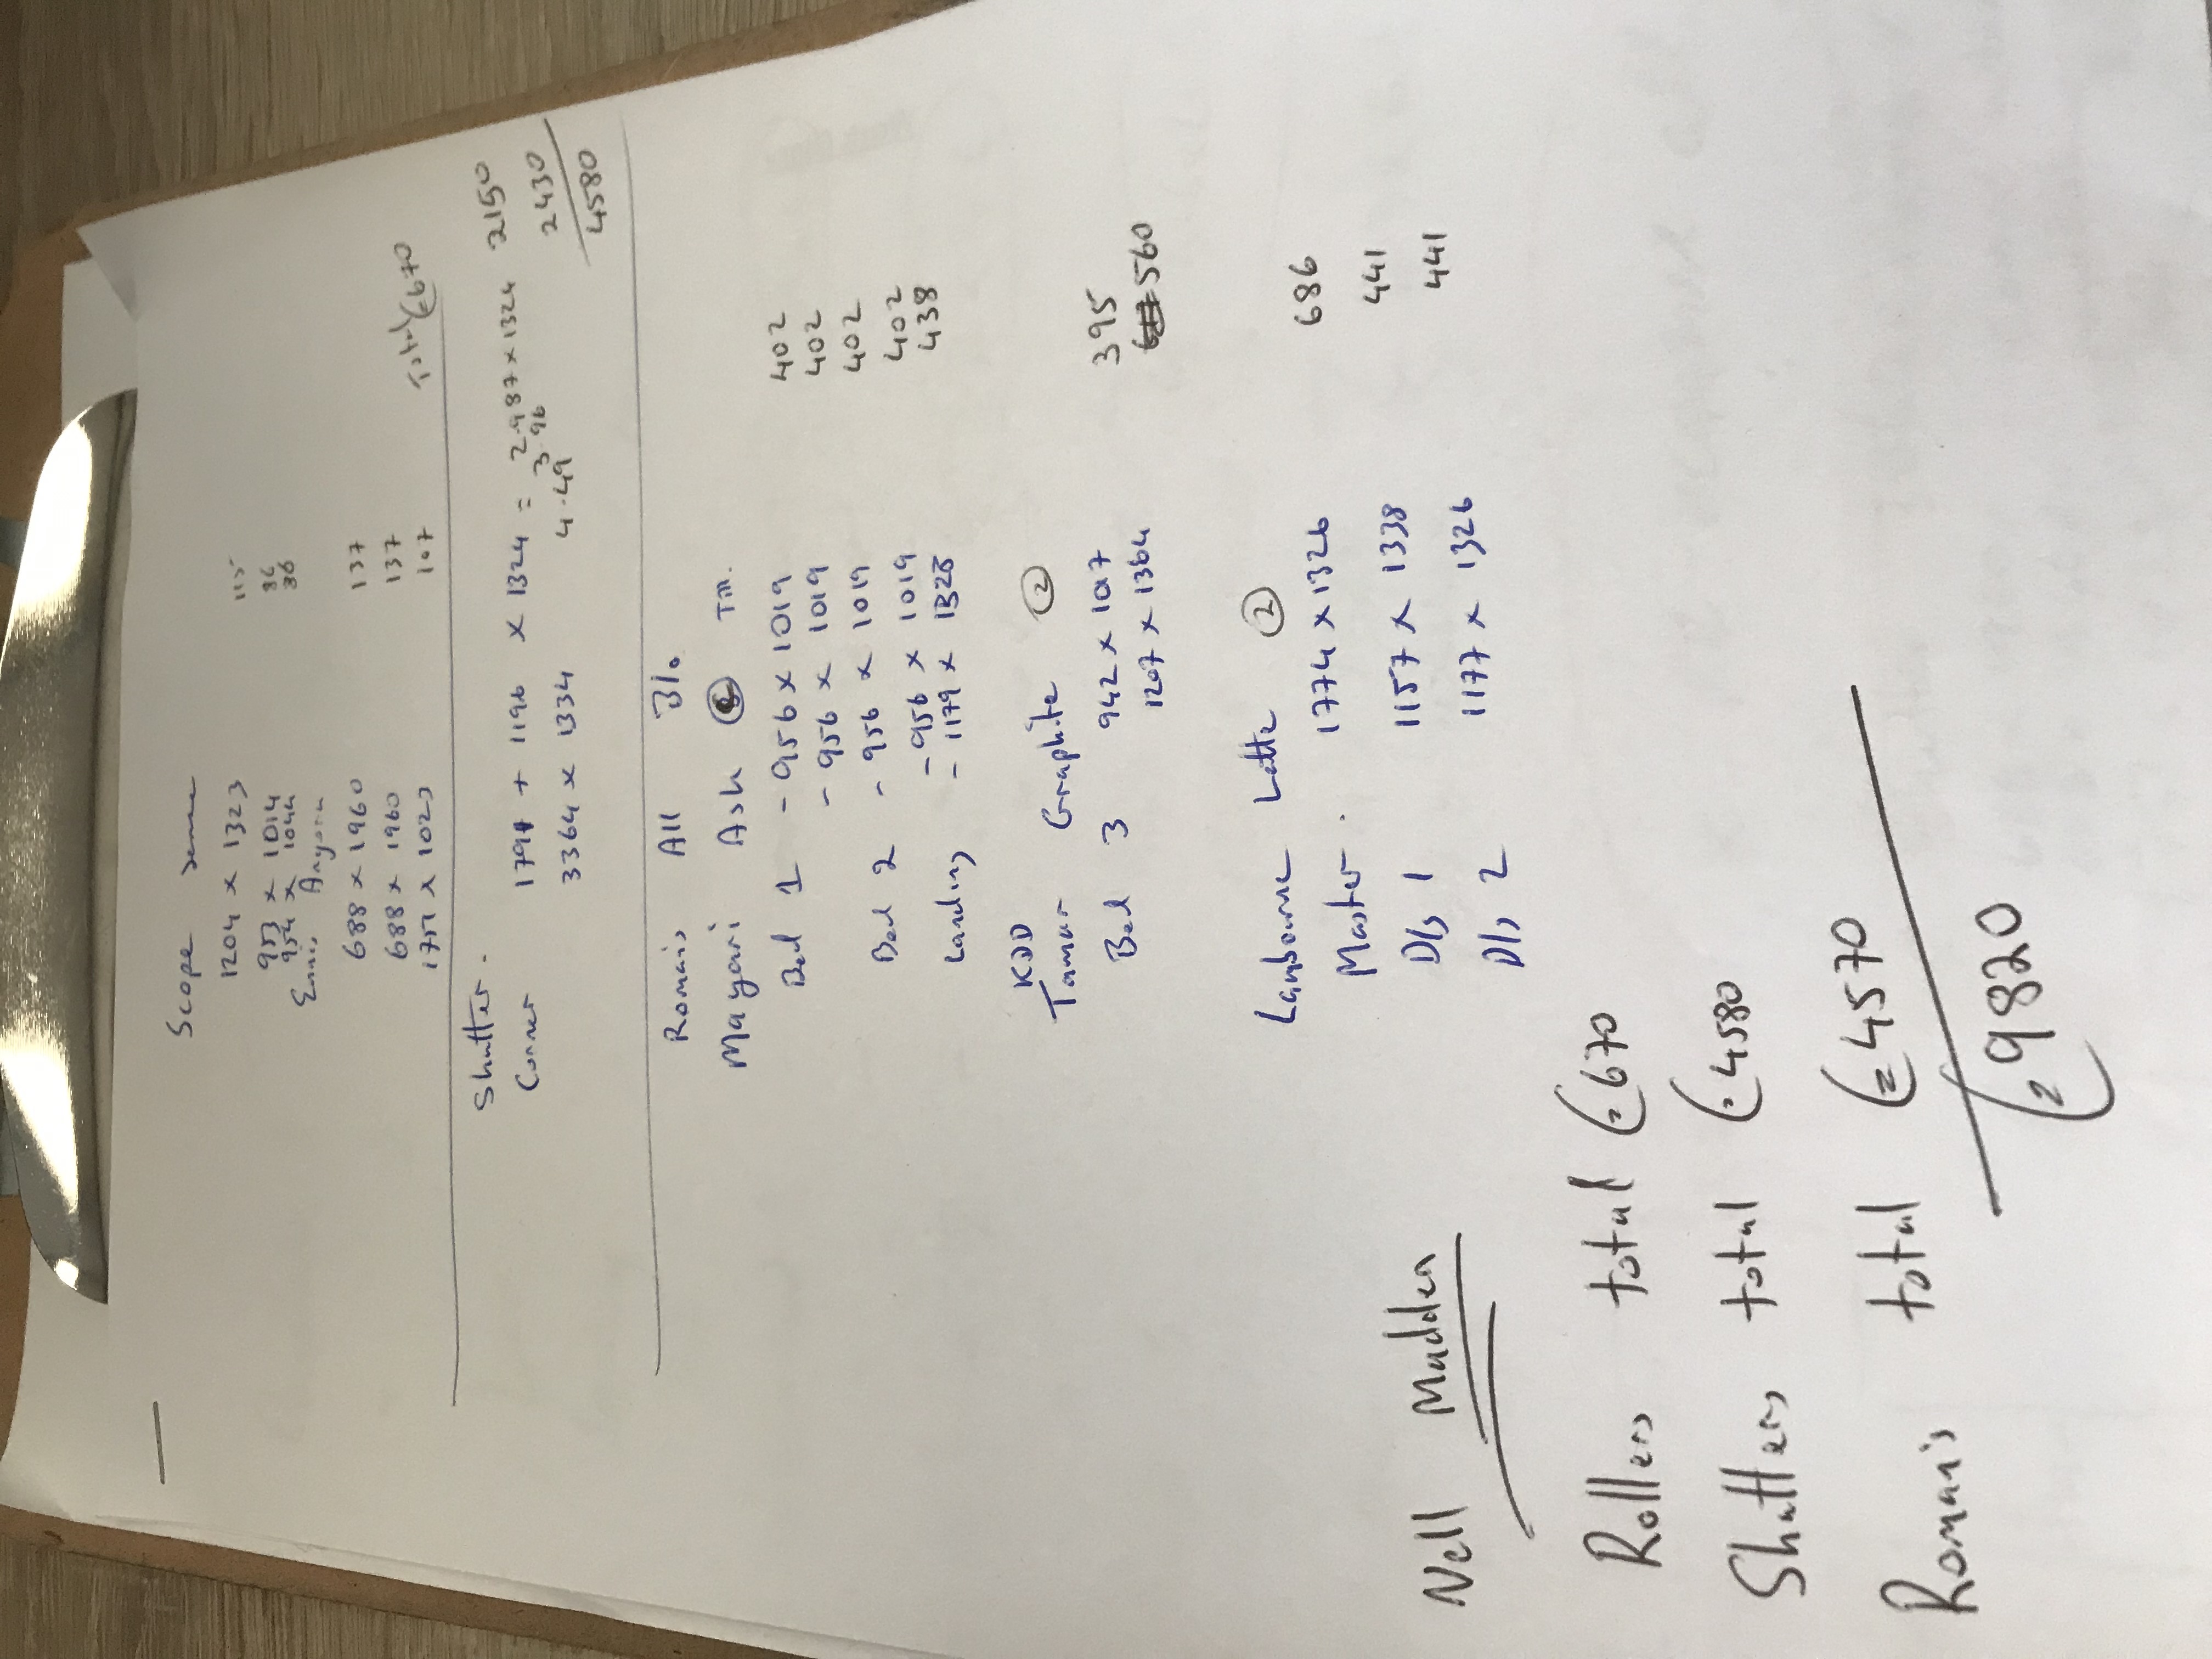 Scope
1204 x 1323 115
953 x 1014 86
954 x 1044 86
Ennis
688 x 1960 137
688 x 1960 137
1751 x 1023 107
Total €670
Shutter.
Corner 1791 + 1196 x 1324 = 2.987 x 1324 2150
3.96
3364 x 1334 4.49 2430
4580
Romais All Blo
Mayari Ash TM.
Bed 1 - 956 x 1019 402
- 956 x 1019 402
Bed 2 - 956 x 1019 402
- 956 x 1019 402
Landing - 1179 x 1328 438
KDD
Tamar Graphite 2
Bed 3 942 x 1017 395
1207 x 1364 560
Lambourne Latte 2
Master. 1774 x 1326 686
D/s 1 1157 x 1338 441
D/s 2 1177 x 1326 441
Nell Madden
Rollers total €670
Shutters total €4580
Romais total €4570
€9820